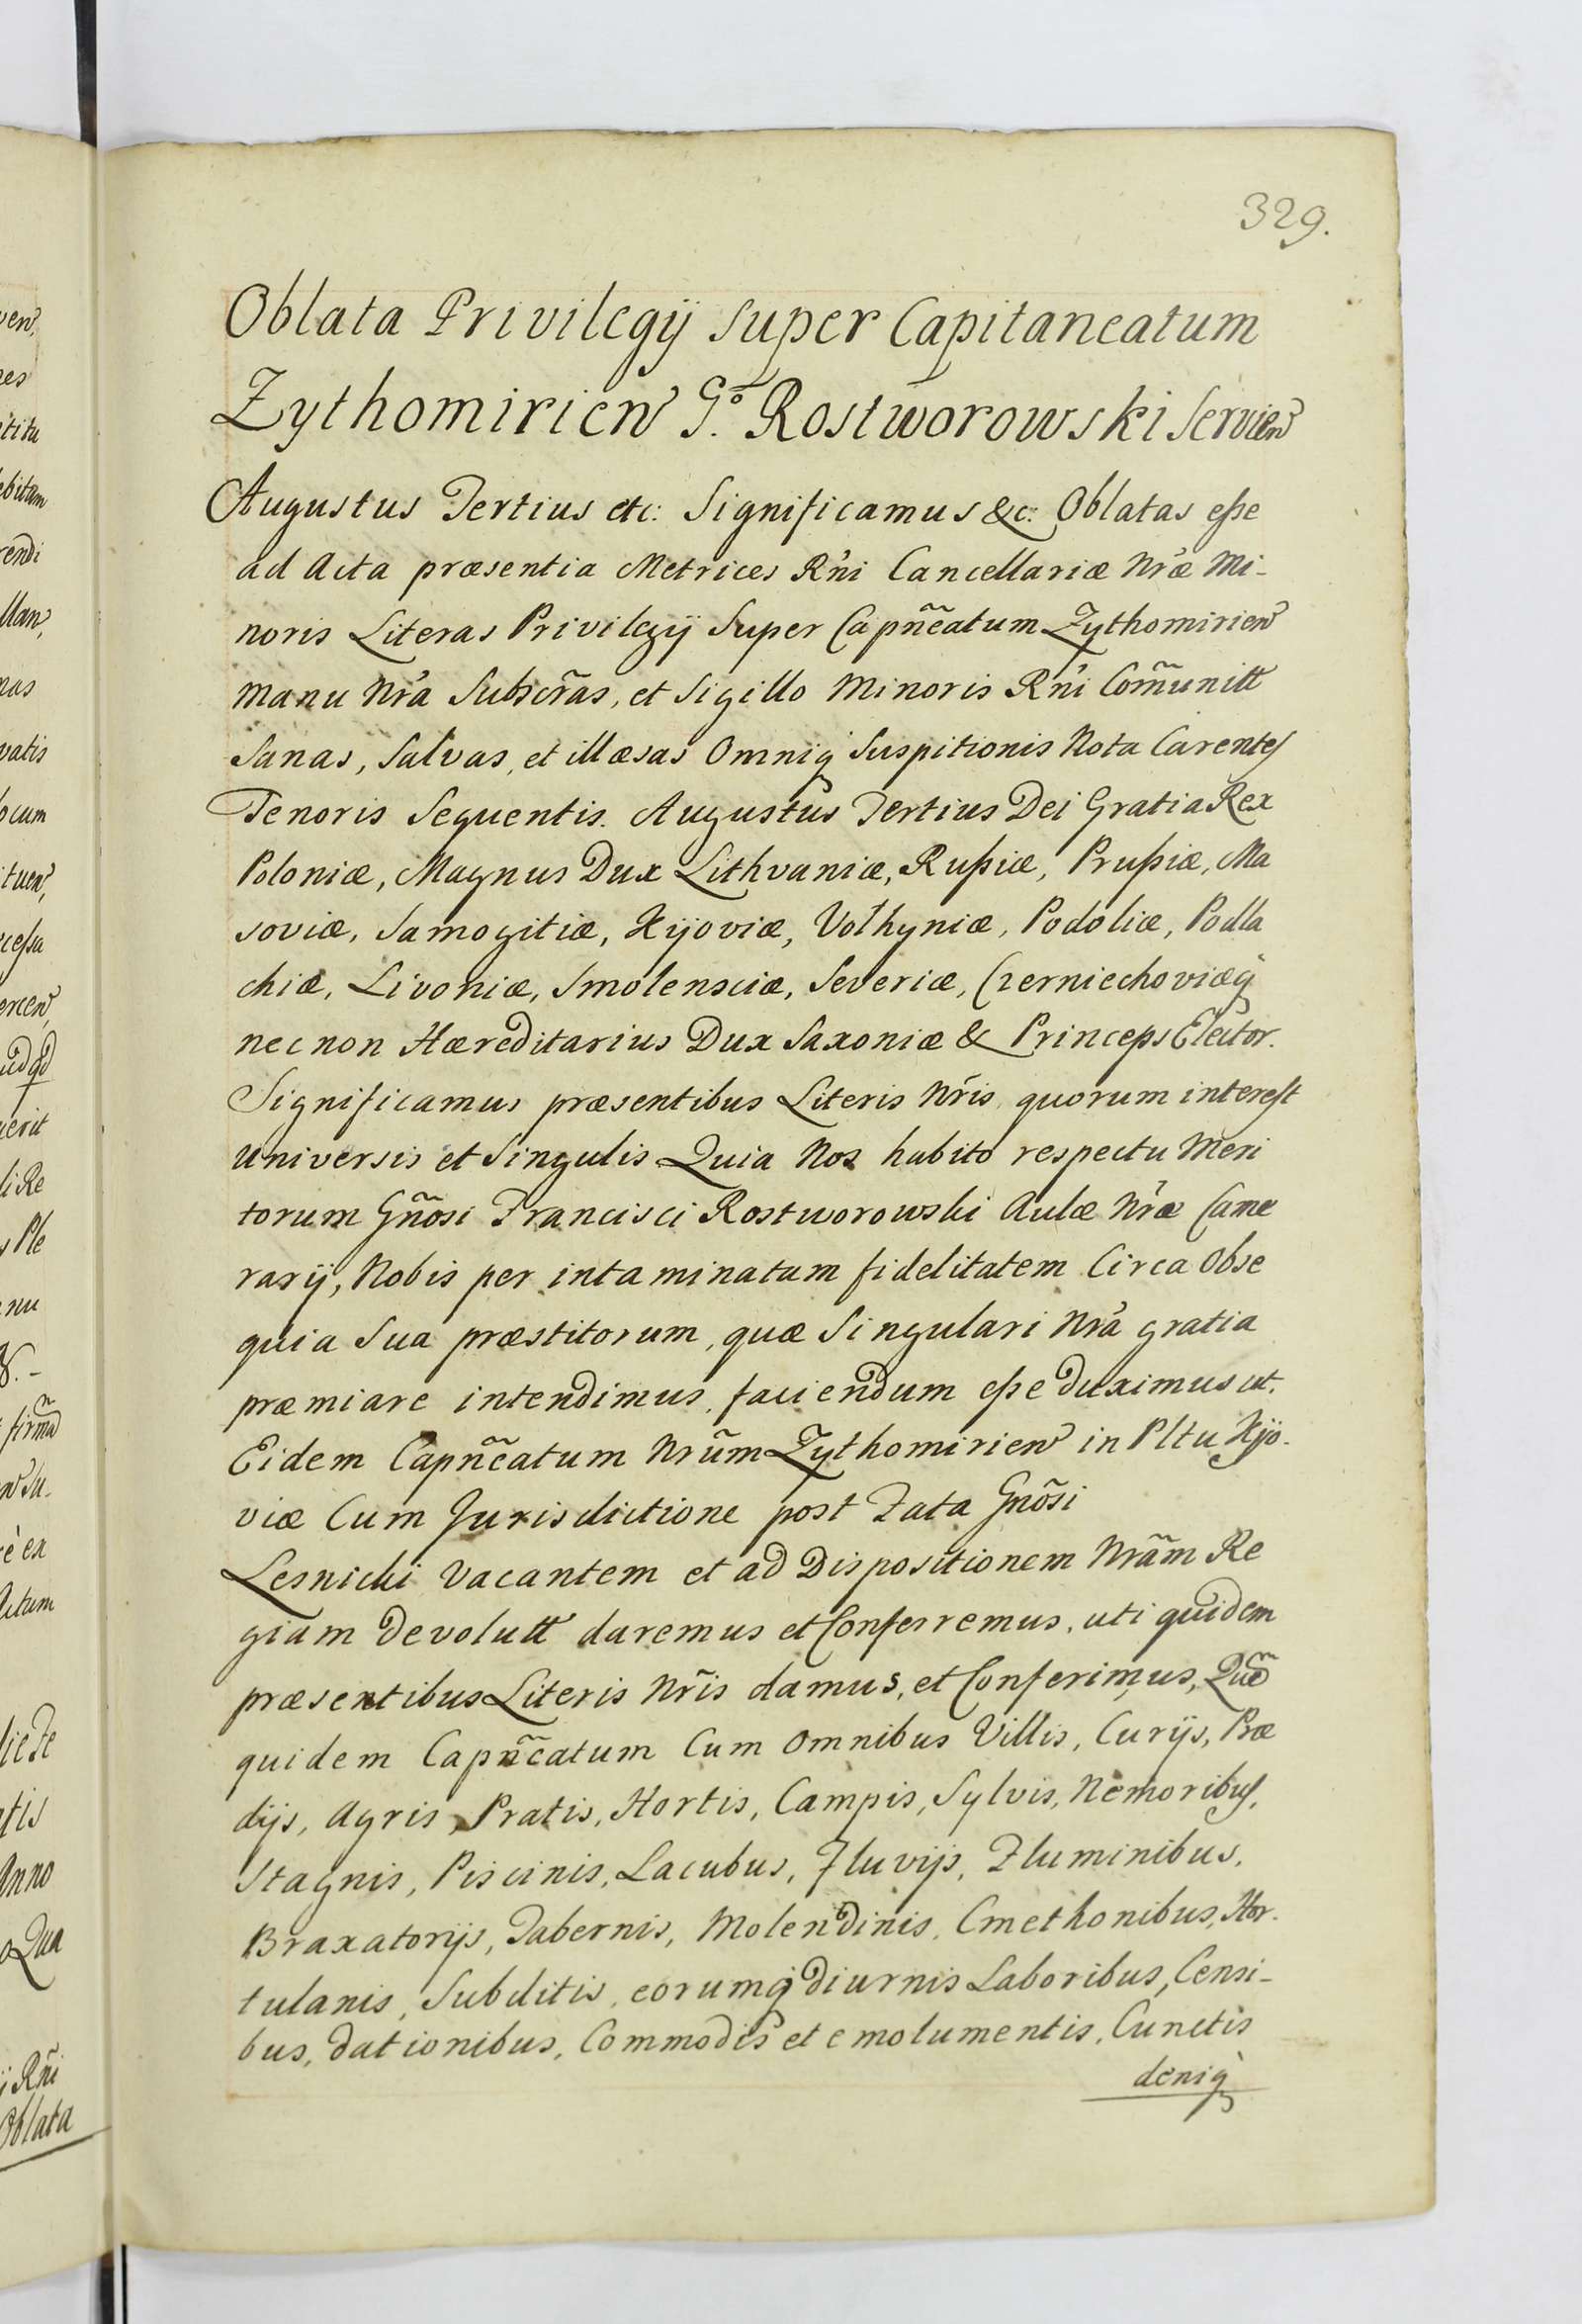 329.
Oblata Privilegij Super Capitaneatum
Zythomirien G.º Rostworowski Servien
Augustus Tertius etc: Significamus &c: Oblatas eſse
ad Acta præsentia Metrices R'ni Cancellariæ Nr'æ Mi-
noris Literas Privilegij Super Capñeatum Zythomirien
Manu Nr'a Subscr̃as, et Sigillo Minoris R'ni Com̃unitt
Sanas, Salvas, et illæsas Omniq́ Suspitionis Nota Carentes
Tenoris Sequentis. Augustus Tertius Dei Gratia Rex
Poloniæ, Magnus Dux Lithvaniæ, Ruſsiæ, Pruſsiæ, Ma
soviæ, Samogitiæ, Kijoviæ, Volhyniæ, Podoliæ, Podla
chiæ, Livoniæ, Smolensciæ, Severiæ, Czerniechoviæq́
nec non Hæreditarius Dux Saxoniæ & Princeps Elector.
Significamus præsentibus Literis Nr̃is, quorum interest
Universis et Singulis Quia Nos habito respectu Meri
torum Gñosi Francisci Rostworowski Aulæ Nr'æ Came
rarij, Nobis per intaminatam fidelitatem Circa Obse
quia Sua præstitorum, quæ Singulari Nr'a gratia
præmiare intendimus, faciendum eſse duximus ut.
Eidem Capñeatum Nrũm Zythomirien in Pltu Kijo-
viæ Cum Jurisdictione post Fata Gnõsi
Lesnicki Vacantem et ad Dispositionem Nrãm Re
giam Devolutt daremus et Conferremus, uti quidem
præsentibus Literis Nr̃is damus, et Conferimus, Quẽ
quidem Capñeatum Cum Omnibus Villis, Curijs, Præ
dijs, Agris, Pratis, Hortis, Campis, Sylvis, Nemoribus,
Stagnis, Piscinis, Lacubus, Fluvijs, Fluminibus,
Braxatorijs, Tabernis, Molendinis, Cmethonibus, Hor-
tulanis, Subditis, eorumq́ diurnis Laboribus, Censi-
bus, dationibus, Commodis et emolumentis, Cunctis
deniq́